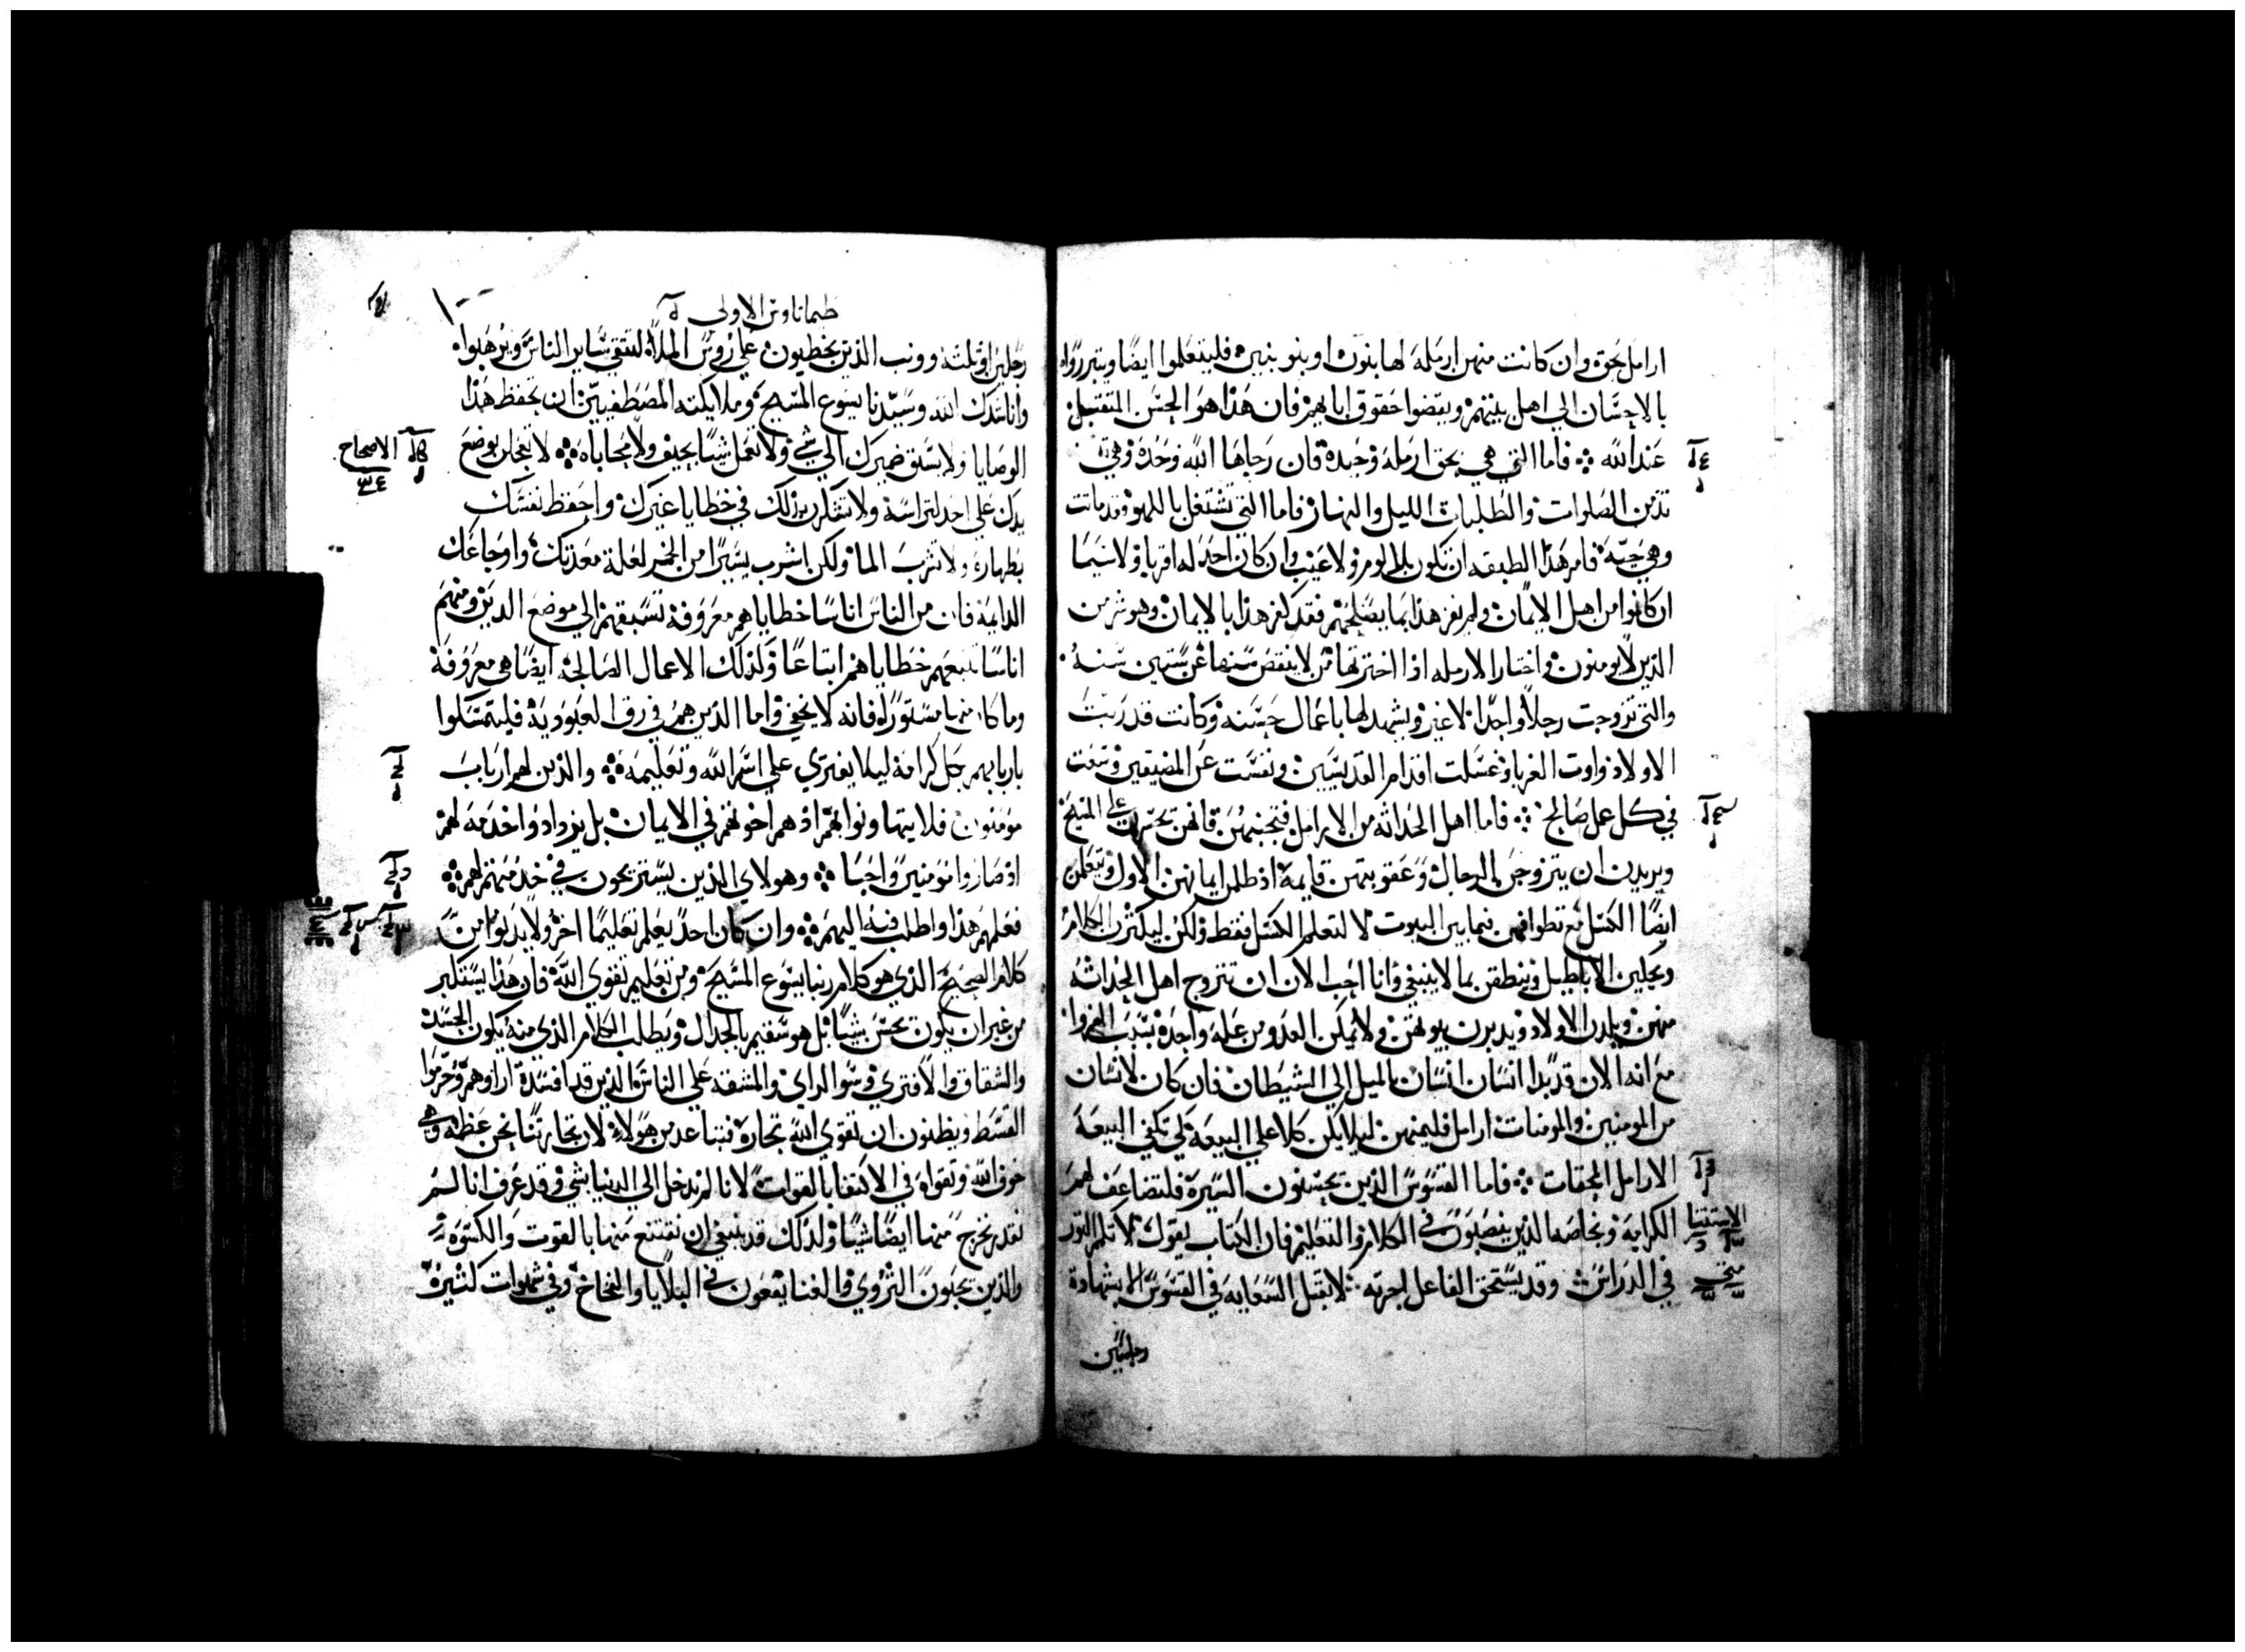 ارامل بحق وان كانت منهن ارمله لها بنون او بنو بنين فليتعلموا ايضا ويتبرروا
بالاحسان الي اهل بيتهم ويقضوا حقوق ابايهم فان هذا هو الحسن المتقبل
عند الله فاما التي هي بحق ارملة وحيدة فان رجاها الله وحده وهي
تدمن الصلوات والطلبات الليل والنهار فاما التي تشتغل باللهو فقد ماتت
وهي حية فامر هذا الطبقه ان تكون بلا لوم ولا عيب وان كان احد له اقربا ولا سيما
ان كانوا من اهل الايمان ولم يعن هذا بما يصلحهم فقد كفر هذا بالايمان وهو شر من
الذين لا يومنون واختار الارمله اذا اخترتها من لا ينقص سنها عن ستين سنه
والتي تزوجت رجلا واحدا لا غير ويشهد لها باعمال حسنه وكانت قد ربت
الاولاد واوت الغربا وغسلت اقدام القديسين ونفست عن المضيقين وسعت
في كل عمل صالح فاما اهل الحداثه من الارامل فتجنبهن فانهن علي المسيح
ويريدن ان يتزوجن بالرجال وعقوبتهن قايمة اذ ظلمن ايمانهن الاول ويتعلمن
ايضا الكسل مع تطوافهن فيما بين البيوت لا لتعلم الكسل فقط ولكن ليكثرن الكلام
الاباطيل وينطقن بما لا ينبغي وانا احب الان ان تتزوج اهل الحداثه
منهن ويلدن الاولاد ويدبرن بيوتهن ولا يمكن العدو من علة واحدة بسبب
مع انه الان قد بدا انسان انسان بالميل الي الشيطان فان كان لانسان
من المومنين والمومنات ارامل فليمنهن ليلا يكن كلا علي البيعة لكي تكفي البيعة
الارامل المحقات فاما القسوس الذين يحسنون السيرة فلتضاعف لهم
الكرامة وبخاصه الذين ينصبون في الكلام والتعليم فان الكتاب يقول لا تكم الثور
في الدراس وقد يستحق الفاعل اجرته لا تقبل السعاية في القسوس الا بشهادة
رجلين
الاستثنا
طيماثاوس الاولي
رجلين او ثلثة وونب الذين يخطيون علي روس الملا ليتقي ساير الناس ويرهبوا
واناشدك الله وسيدنا يسوع المسيح وملايكته المصطفيين ان تحفظ هذا
الوصايا ولا يسبق ضميرك الي شي ولا تعمل شيا بحيف ولا بمحاباه لا تعجلن بوضع
يدك علي احد لتراسة ولا تشتركن بذلك في خطايا غيرك واحفظ نفسك
بطهارة ولا تشرب الما ولكن اشرب يسيرا من الخمر لعلة معدتك واوجاعك
الدايمة فان من الناس اناسا خطاياهم معروفة تسبقهم الي موضع الدين ومنهم
اناسا تتبعهم خطاياهم اتباعا وكذلك الاعمال الصالحة ايضا هي معروفة
وما كان منها مستورا فانه لا يخفي واما الذين هم في رق العبودية فليتمسكوا
باربابهم بكل كرامة ليلا يفتري علي اسم الله وتعليمه والذين لهم ارباب
مومنون فلا يتهاونوا بهم اذ هم اخوتهم في الايمان بل يزدادوا خدمة لهم
اذ صاروا مومنين واحبا وهولاي الذين يستريحون في خدمتهم لهم
فعلمهم هذا واطلب فيه اليهم وان كان احد يعلم تعليما اخر ولا يدنوا من
كلام الصحيح الذي هو كلام ربنا يسوع المسيح ومن تعليم تقوي الله فان هذا يستكبر
من غير ان يكون يحسن شيا بل هو سقيم بالجدال ويطلب الكلام الذي منه يكون الحسد
والشقاق والافتري وسوا الراي والمشقه علي الناس الذين قد افسدة اراوهم وحرموا
القسط ويظنون ان تقوي الله تجارة فتباعد من هولاي لان تجارتنا نحن عظمه وهي
خوف الله وتقواه في الاكتفا بالقوات لانا لم ندخل الي الدنيا بشي وقد عرف انا لسنا
نقدر نخرج منها ايضا شيا ولذلك قد ينبغي ان نقتنع منها بالقوت والكسوة
والذين يحبون الثروي والغنا يقعون في البلايا والفخاخ وفي شهوات كثيرة
الاصحاح